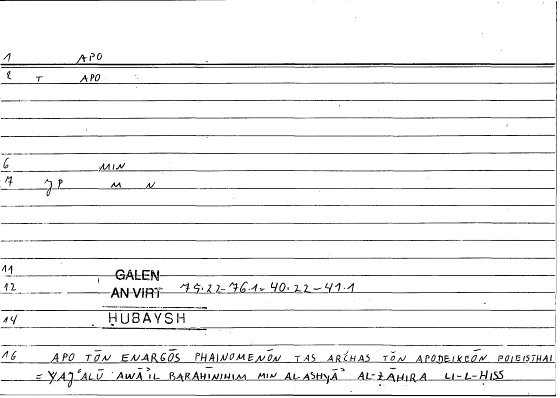 1 APO
2 T APO
6 MIN
7 JP M N
11
GALEN
12 AN VIRT 75.22-76.1 = 40.22-41.1
14 ḤUBAYSH
16 APO TŌN ENARGŌS PHAINOMENŌN TAS ARCHAS TŌN APODEIXEŌN POIEISTHAI
= YAJʿALŪ AWĀʾIL BARĀHĪNIHIM MIN AL-ASHYĀʾ AL-ẒĀHIRA LI-L-ḤISS